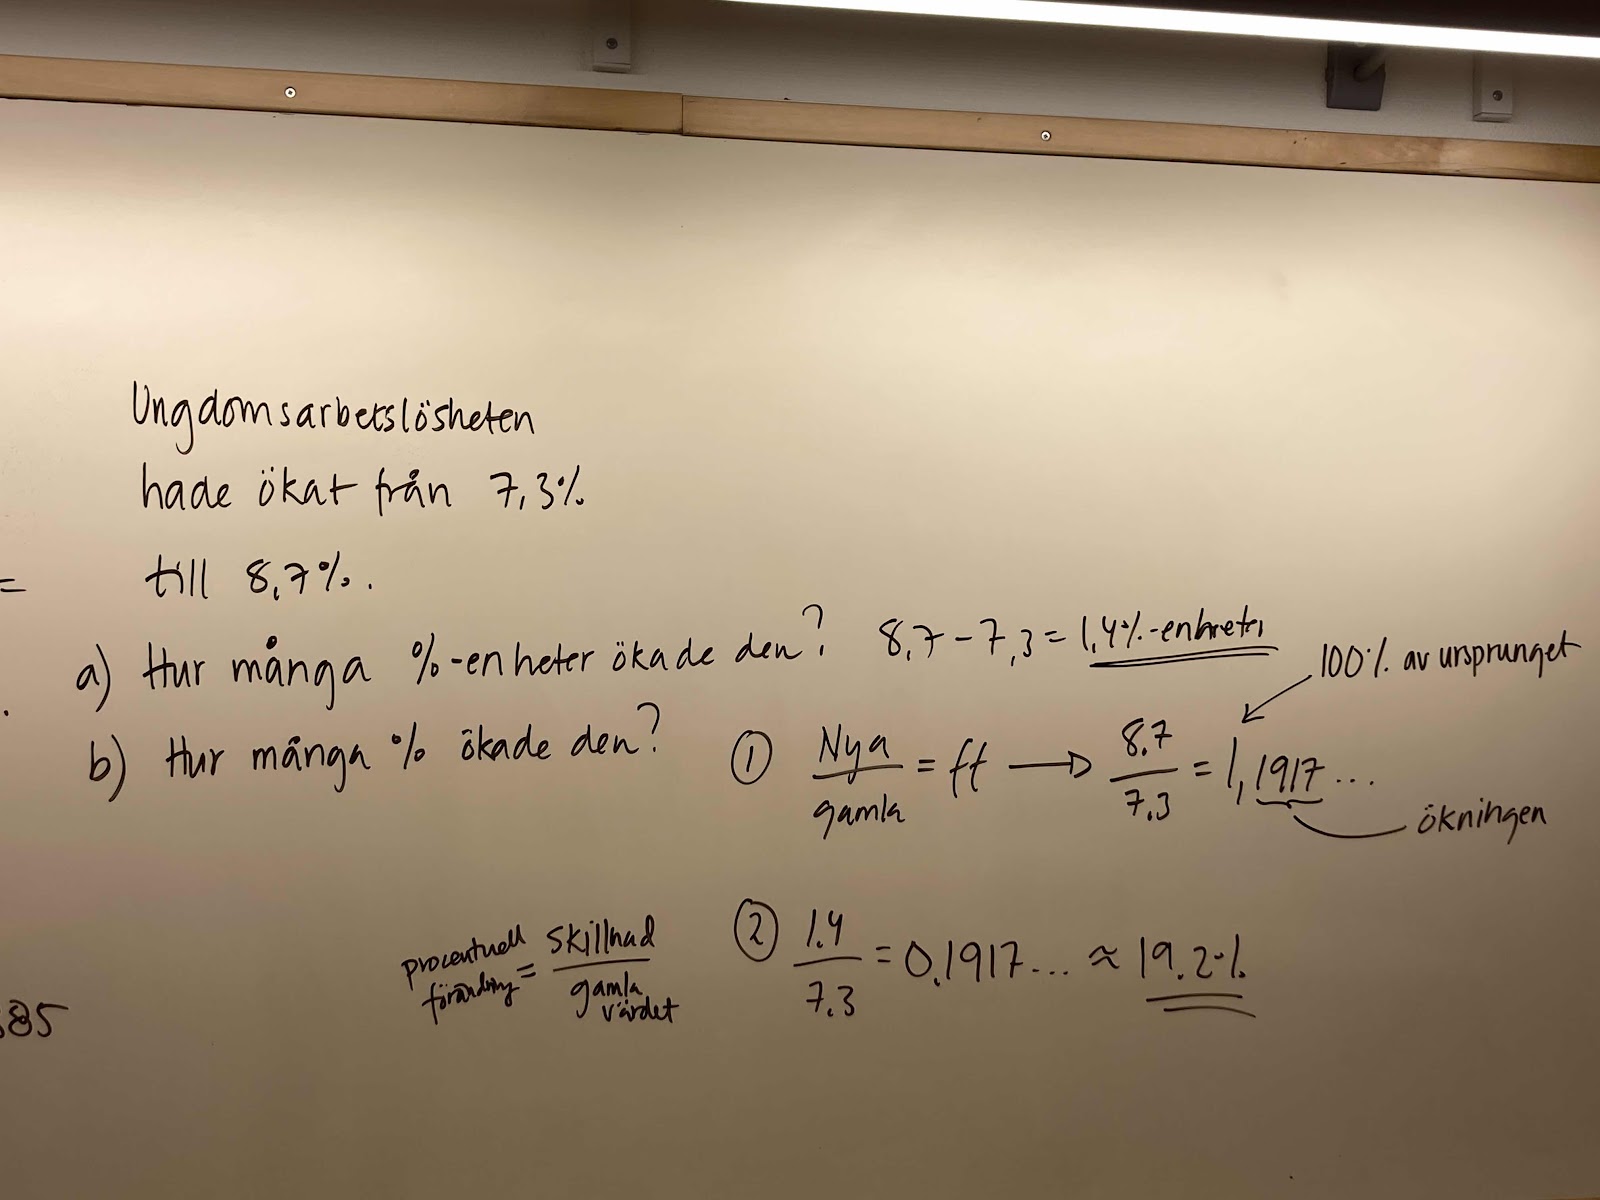 Ungdomsarbetslösheten
hade ökat från 7,3%
till 8,7%.
=
a) Hur många %-enheter ökade den? 8,7 - 7,3 = 1,4%-enheter
100% av ursprunget
b) Hur många % ökade den? ① Nya/gamla = ff → 8.7/7.3 = 1,1917...
ökningen
procentuell förändring = skillnad/gamla värdet
② 1.4/7.3 = 0.1917... ≈ 19.2%
.885